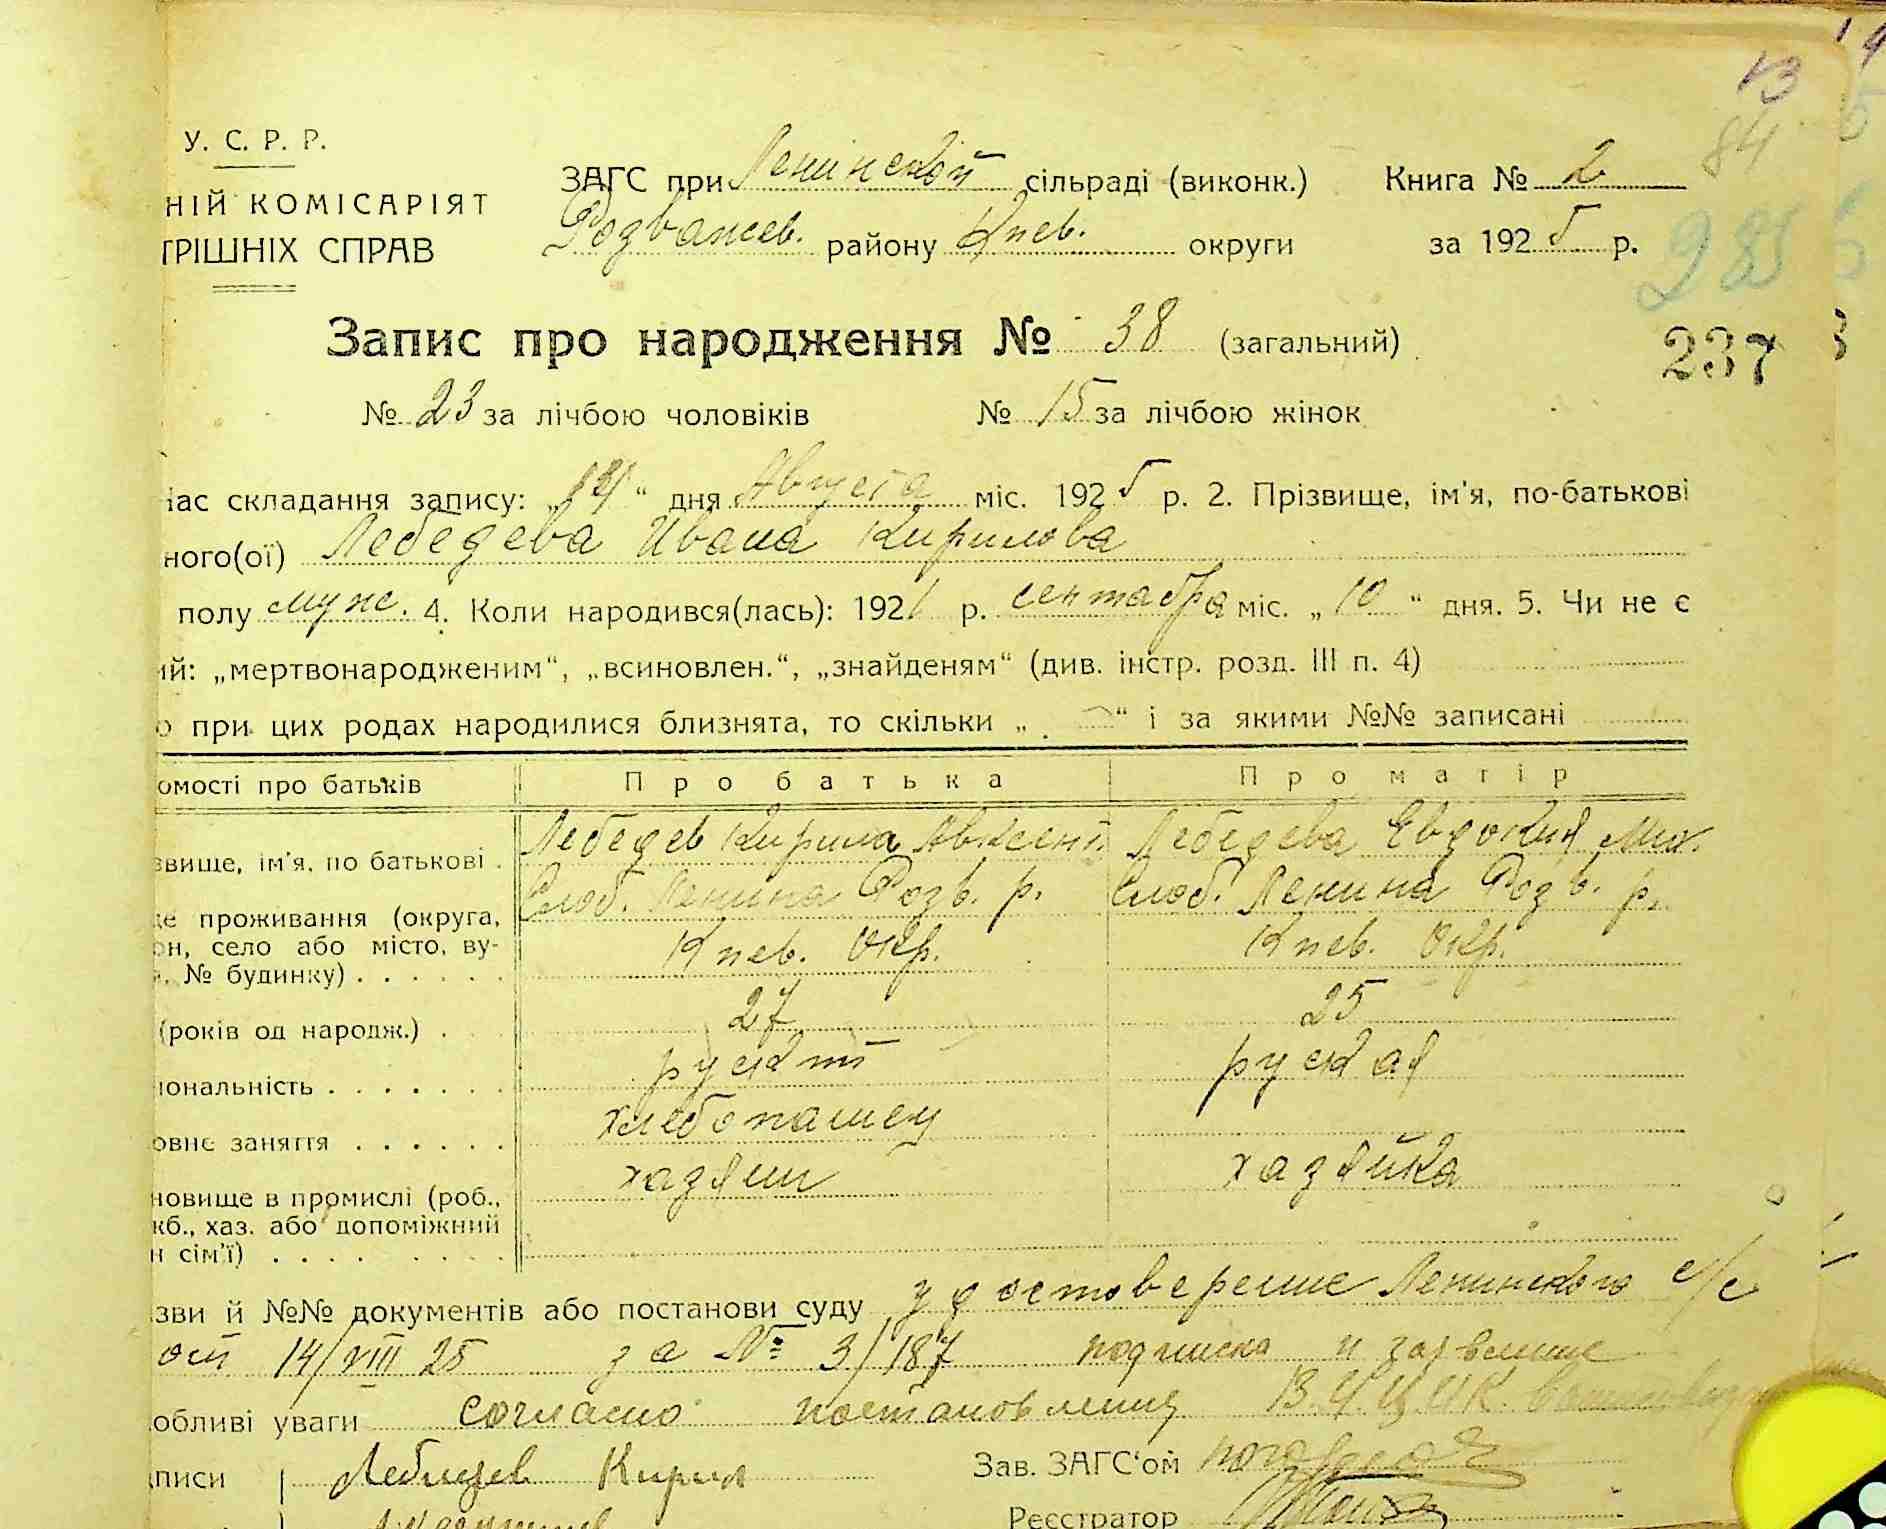 13
84
У. С. Р. Р.
ЗАГС при Ленинской сільраді (виконк.) Книга № 2
НІЙ КОМІСАРІЯТ
Розважев. району Киев. округи за 1925 р.
ТРІШНІХ СПРАВ
285
Запис про народження № 38 (загальний)
237
№ 23 за лічбою чоловіків № 15 за лічбою жінок
Час складання запису: „14“ дня Августа міс. 1925 р. 2. Прізвище, ім'я, по-батькові
ного(ої) Лебедева Ивана Кирилова
полу муж. 4. Коли народився(лась): 1921 р. сентабра міс. „10“ дня. 5. Чи не є
ий: „мертвонародженим“, „всиновлен.“, „знайденям“ (див. інстр. розд. III п. 4)
о при цих родах народилися близнята, то скільки „ “ і за якими №№ записані
омості про батьків Про батька Про матір
звище, ім'я, по батькові Лебедев Кирила Авксент. Лебедева Евдокия Мих.
це проживання (округа, Слоб. Ленина Розв. р. Слоб. Ленина Розв. р.
он, село або місто, ву- Киев. Окр. Киев. Окр.
№ будинку)
(років од народж.) 27 25
іональність руский руская
овне заняття хлебопашец
новище в промислі (роб., хазяин хазяйка
кб., хаз. або допоміжний
н сім'ї)
зви й №№ документів або постанови суду удостоверение Ленинского с/с
от 14/VIII 25 за № 3/187 подписка и заявление
обливі уваги согласно постановления В.У.Ц.И.К.
писи Лебедев Кирил Зав. ЗАГС'ом
Реєстратор